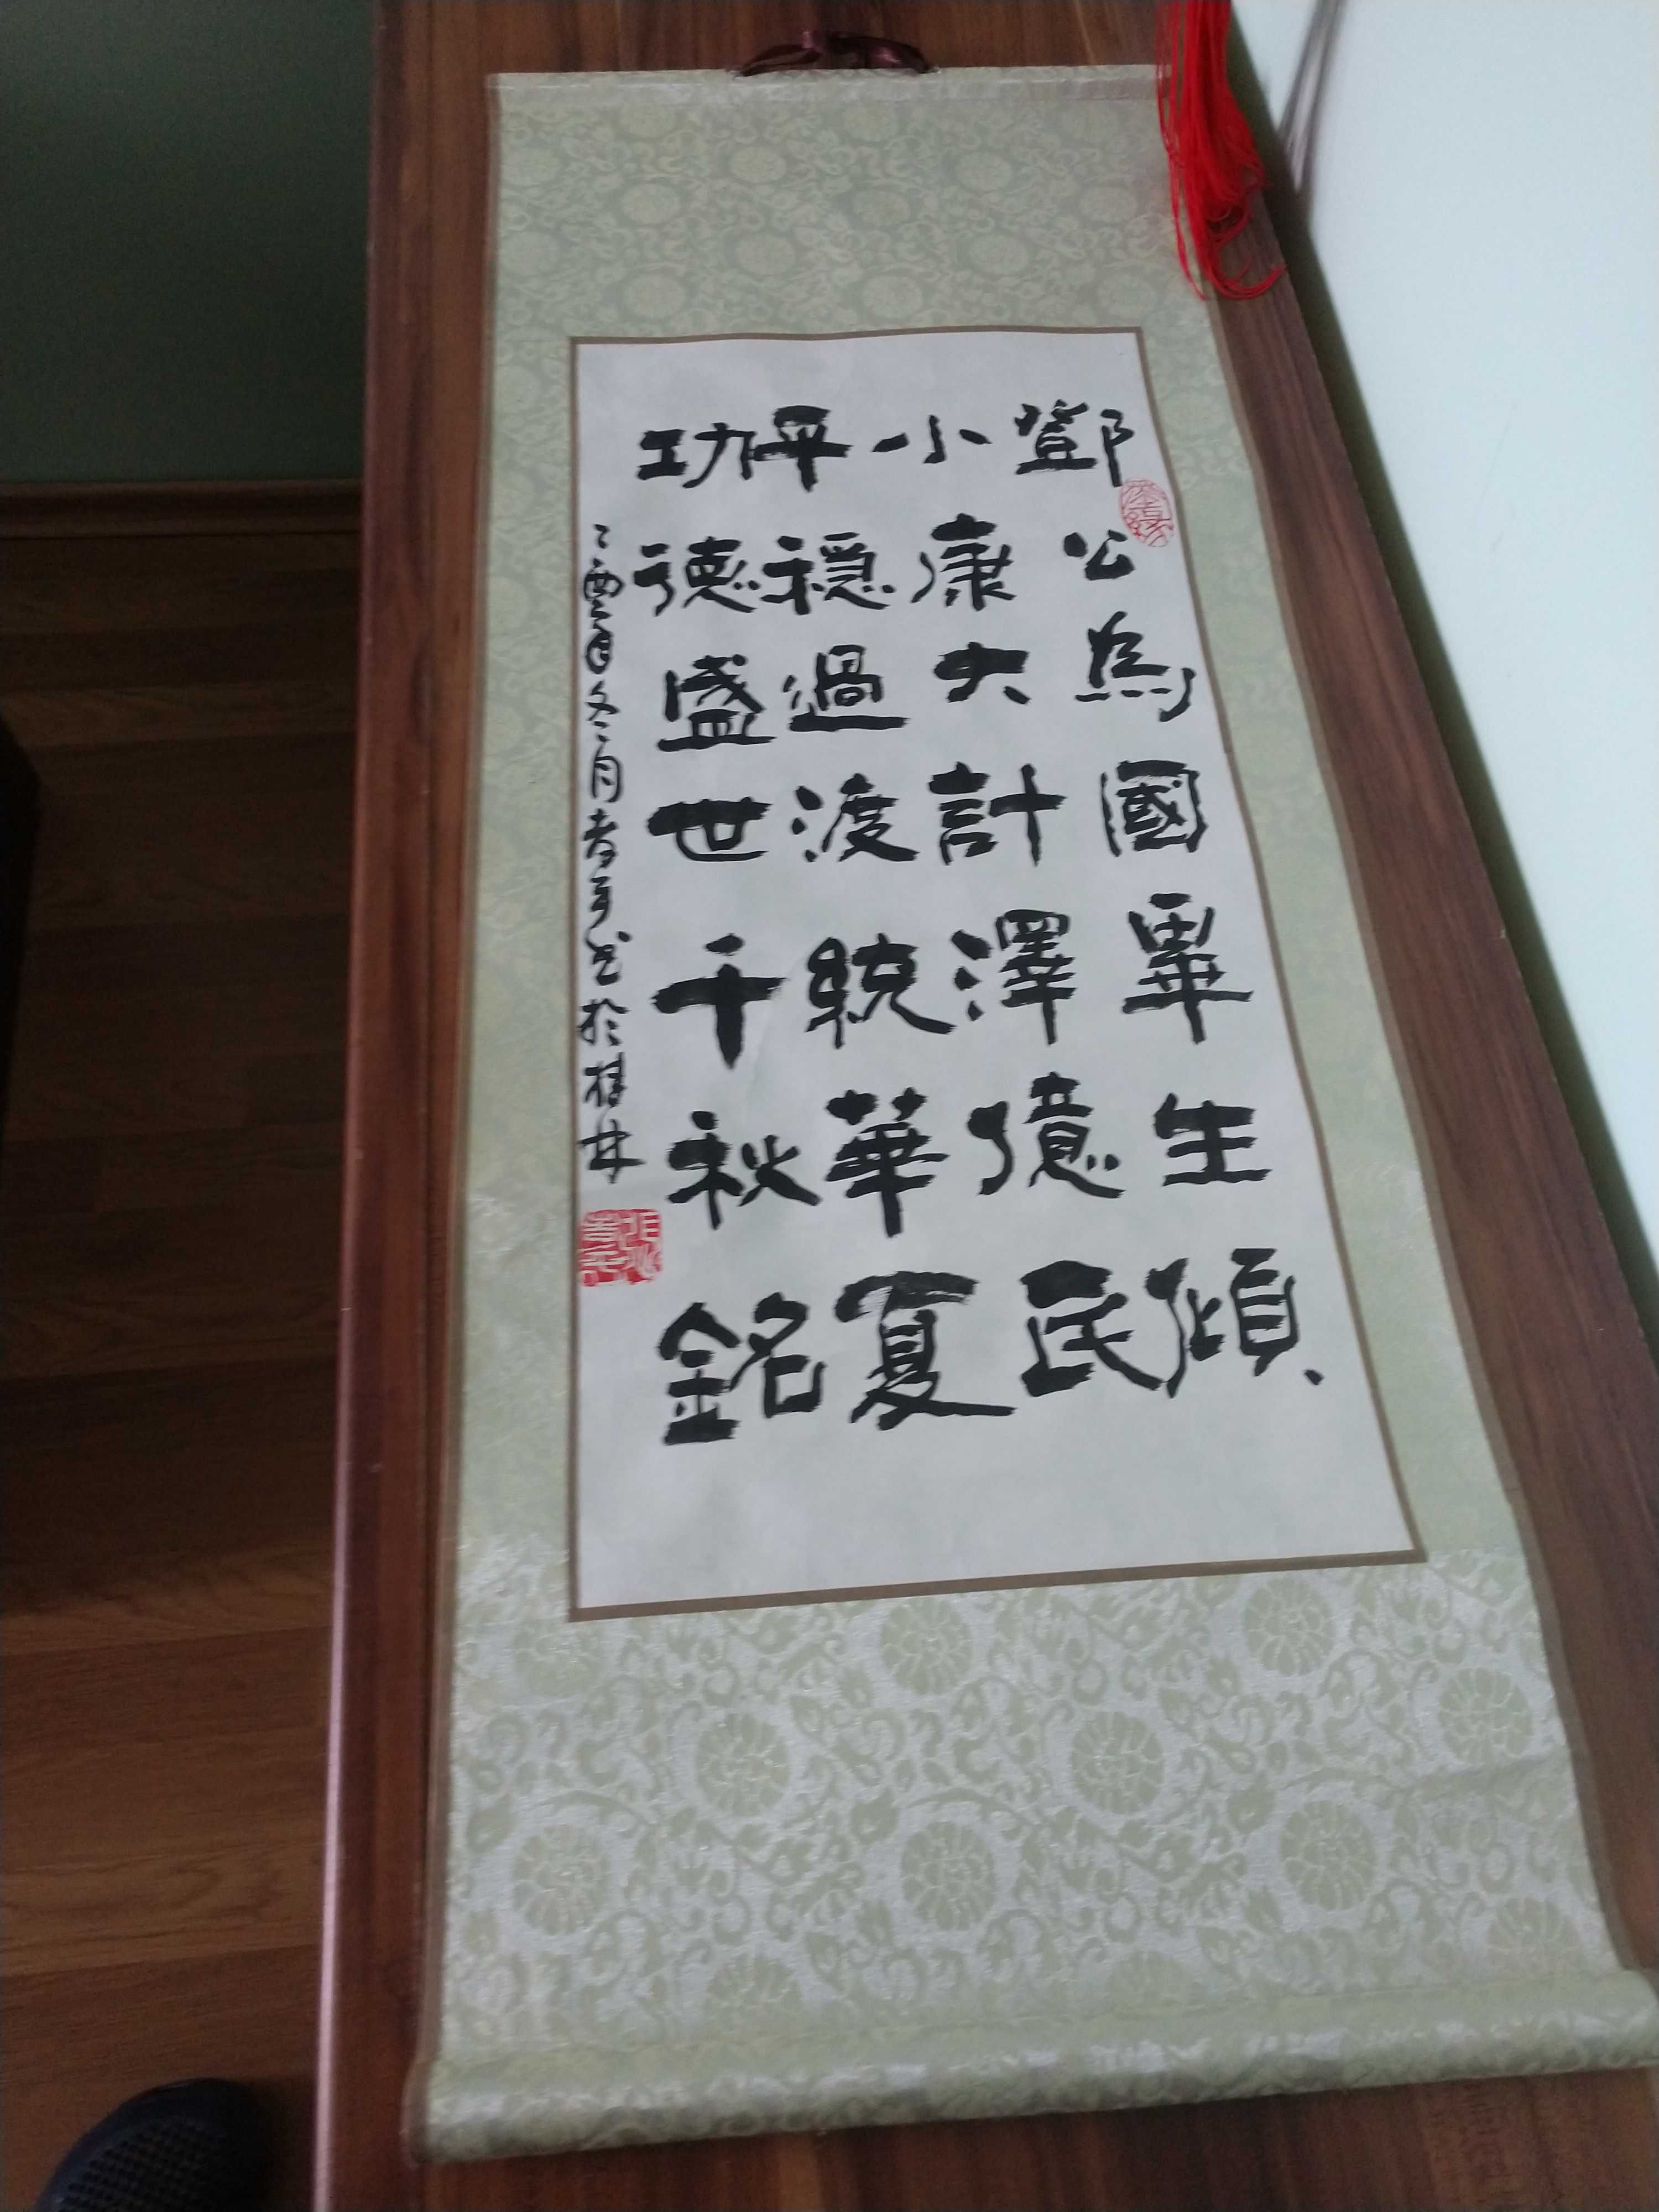 鄧公為國畢生傾
小康大計澤億民
平穩過渡統華夏
功德盛世千秋銘
乙酉年冬月書於桂林